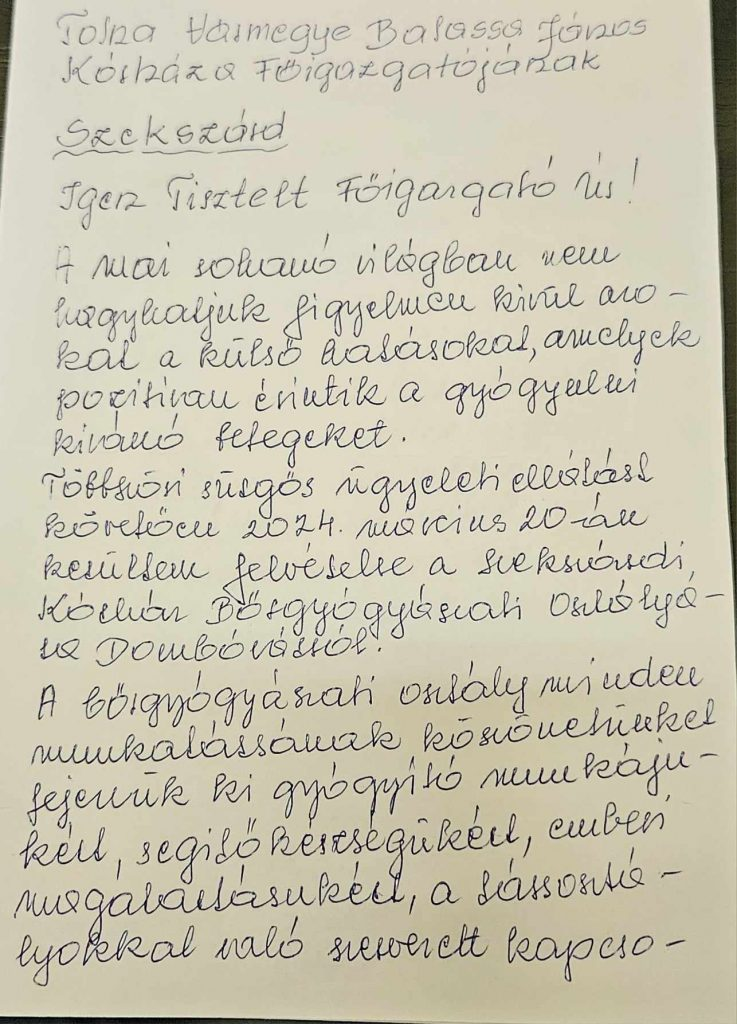 Tolna Vármegye Balassa János
Kórháza Főigazgatójának
Szekszárd
Igen Tisztelt Főigazgató Úr!
A mai rohanó világban nem
hagyhatjuk figyelmen kívül azo-
kat a külső hatásokat, amelyek
pozitívan érintik a gyógyulni
kívánó betegeket.
Többszöri sürgős ügyeleti ellátást
követően 2024. március 20-án
kerültem felvételre a szekszárdi
Kórház Bőrgyógyászati Osztályá-
ra Dombóvárról.
A bőrgyógyászati osztály minden
munkatársának köszönetünket
fejezzük ki gyógyító munkáju-
kért, segítőkészségükért, emberi
magatartásukért, a társosztá-
lyokkal való szervezett kapcso-